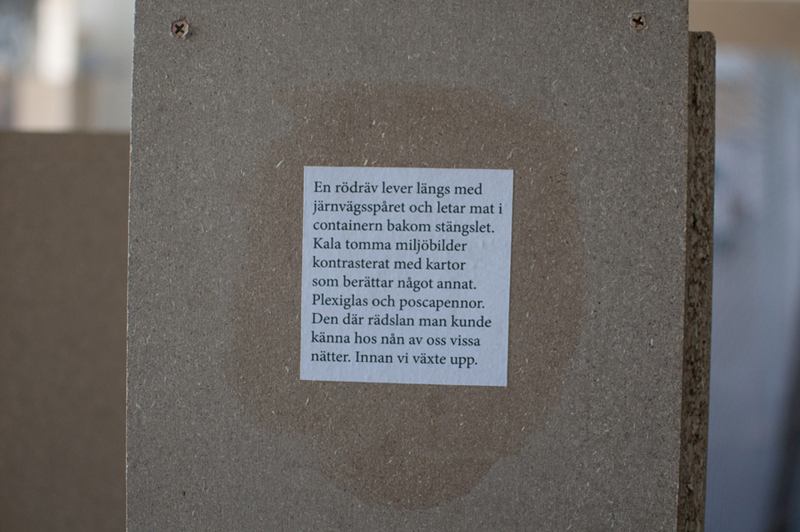 En rödräv lever längs med
järnvägsspåret och letar mat i
containern bakom stängslet.
Kala tomma miljöbilder
kontrasterat med kartor
som berättar något annat.
Plexiglas och poscapennor.
Den där rädslan man kunde
känna hos nån av oss vissa
nätter. Innan vi växte upp.